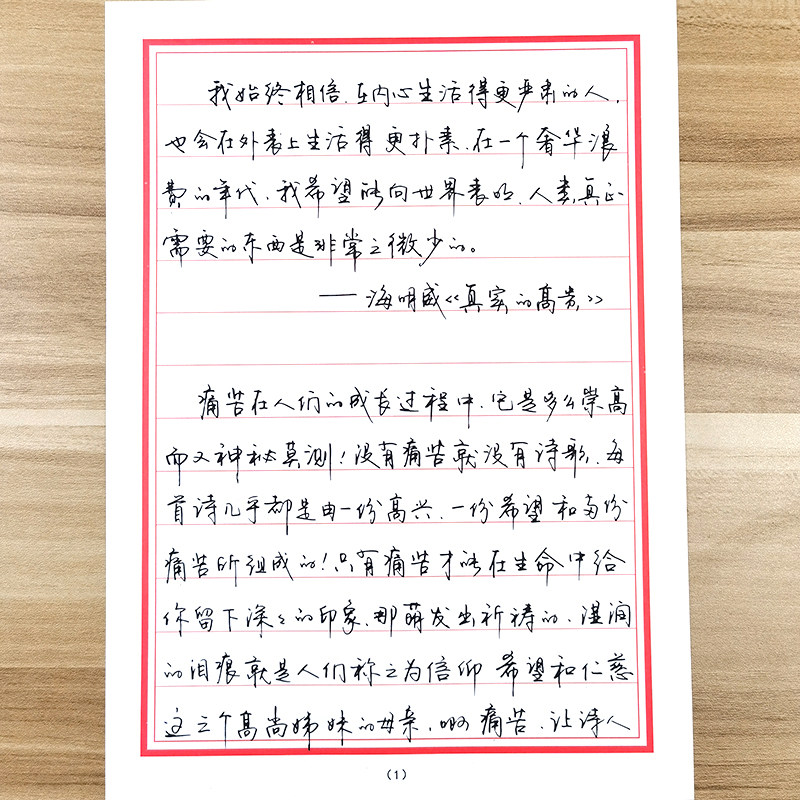 我始终相信，在内心生活得更严肃的人，
也会在外表上生活得更朴素，在一个奢华浪
费的年代，我希望能向世界表明，人类真正
需要的东西是非常之微少的。
——海明威《真实的高贵》
痛苦在人们的成长过程中，它是多么崇高
而又神秘莫测！没有痛苦就没有诗歌，每
首诗几乎都是由一份高兴，一份希望和两份
痛苦所组成的！只有痛苦才能在生命中给
你留下深深的印象，那萌发出祈祷的，湿润
的泪痕就是人们称之为信仰 希望和仁慈
这三个高尚姊妹的母亲，啊 痛苦，让诗人
（1）